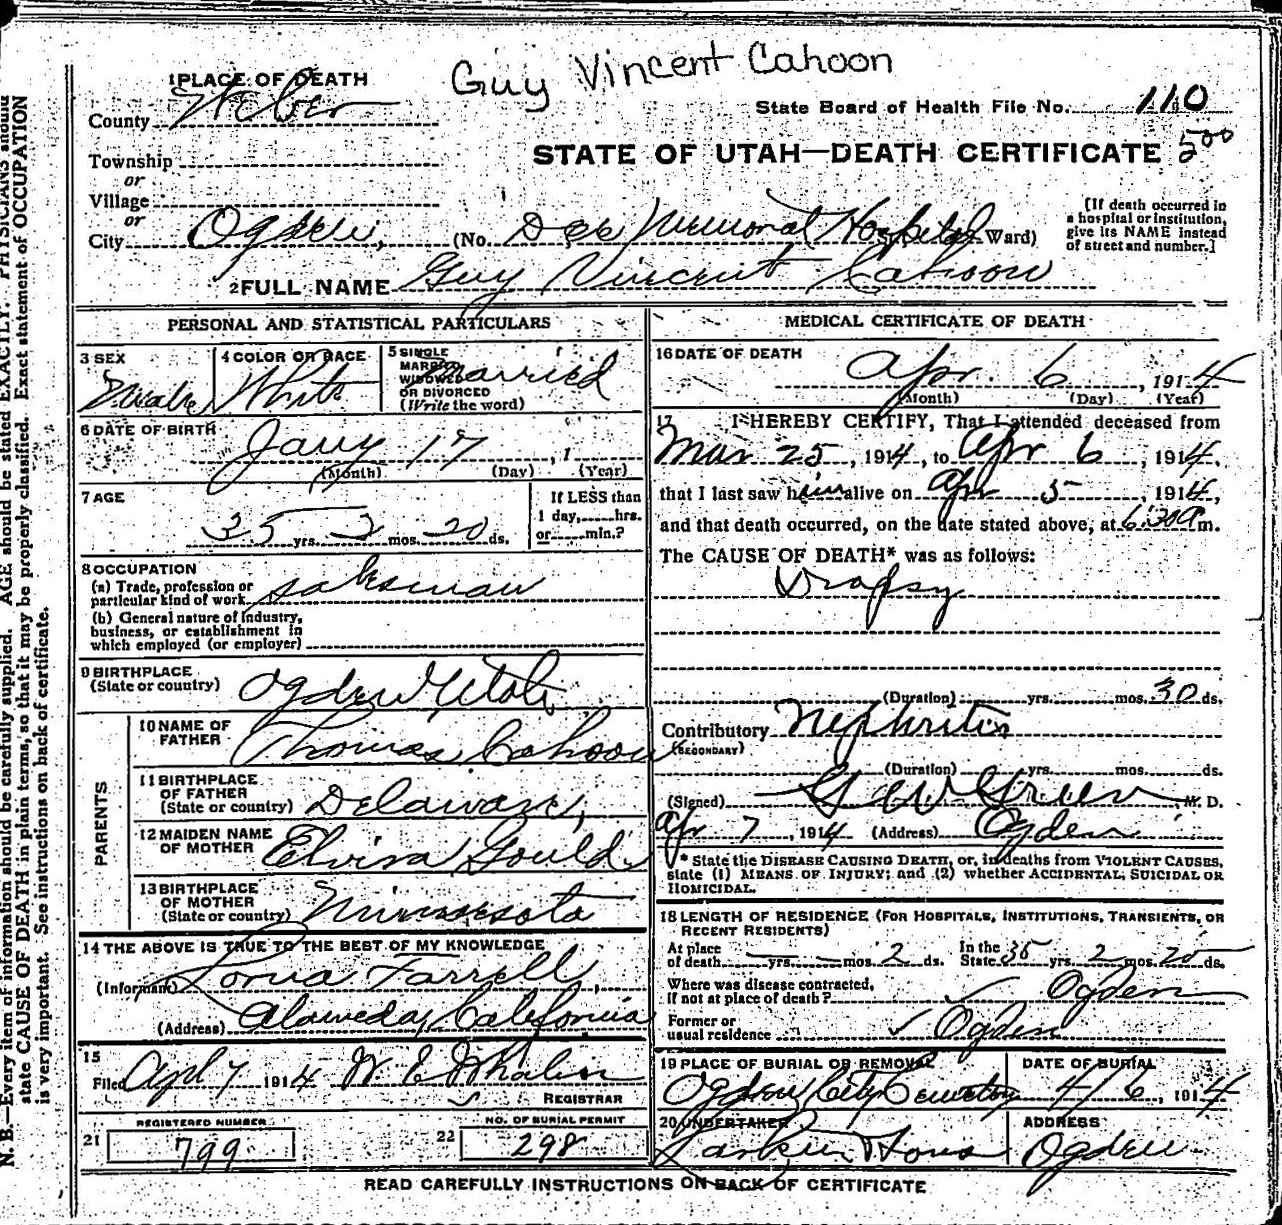 Guy Vincent Cahoon
1 PLACE OF DEATH
County Weber
State Board of Health File No. 110
Township
or
Village
or
City Ogden,
STATE OF UTAH—DEATH CERTIFICATE 500
(No. Dee Memorial Hospital Ward)
[If death occurred in
a hospital or institution,
give its NAME instead
of street and number.]
2 FULL NAME Guy Vincent Cahoon
PERSONAL AND STATISTICAL PARTICULARS
3 SEX
Male
4 COLOR OR RACE
White
5 SINGLE
MARRIED
WIDOWED
OR DIVORCED
(Write the word)
Married
6 DATE OF BIRTH
Jany 17, 1
(Month) (Day) (Year)
7 AGE
35 yrs. 2 mos. 20 ds.
If LESS than
1 day,......hrs.
or......min.?
8 OCCUPATION
(a) Trade, profession or
particular kind of work salesman
(b) General nature of industry,
business, or establishment in
which employed (or employer)
9 BIRTHPLACE
(State or country) Ogden Utah
PARENTS
10 NAME OF
FATHER Thomas Cahoon
11 BIRTHPLACE
OF FATHER
(State or country) Delaware,
12 MAIDEN NAME
OF MOTHER Elvira Gould
13 BIRTHPLACE
OF MOTHER
(State or country) Minnesota
14 THE ABOVE IS TRUE TO THE BEST OF MY KNOWLEDGE
(Informant) Farrell,
(Address) Alameda, California
15
Filed Apl 7 1914 W. E. Whalen
REGISTRAR
21
REGISTERED NUMBER
799
22
NO. OF BURIAL PERMIT
298
MEDICAL CERTIFICATE OF DEATH
16 DATE OF DEATH
Apr. 6, 1914
(Month) (Day) (Year)
17 I HEREBY CERTIFY, That I attended deceased from
Mar 25, 1914, to Apr 6, 1914,
that I last saw him alive on Apr 5, 1914,
and that death occurred, on the date stated above, at 6.30 a m.
The CAUSE OF DEATH* was as follows:
Dropsy
(Duration) yrs. mos. 30 ds.
Contributory Nephritis
(SECONDARY)
(Duration) yrs. mos. ds.
(Signed) G W Green M. D.
Apr 7, 1914 (Address) Ogden
* State the DISEASE CAUSING DEATH, or, in deaths from VIOLENT CAUSES,
state (1) MEANS OF INJURY; and (2) whether ACCIDENTAL, SUICIDAL OR
HOMICIDAL.
18 LENGTH OF RESIDENCE (FOR HOSPITALS, INSTITUTIONS, TRANSIENTS, OR
RECENT RESIDENTS)
At place
of death — yrs. — mos. 2 ds.
In the
State 35 yrs. 2 mos. 20 ds.
Where was disease contracted,
if not at place of death? ✓ Ogden
Former or
usual residence ✓ Ogden
19 PLACE OF BURIAL OR REMOVAL
Ogden City Cemetery
DATE OF BURIAL
4/6, 1914
20 UNDERTAKER
Larkin & Sons
ADDRESS
Ogden
READ CAREFULLY INSTRUCTIONS ON BACK OF CERTIFICATE
N. B.—Every item of information should be carefully supplied. AGE should be stated EXACTLY. PHYSICIANS should
state CAUSE OF DEATH in plain terms, so that it may be properly classified. Exact statement of OCCUPATION
is very important. See instructions on back of certificate.